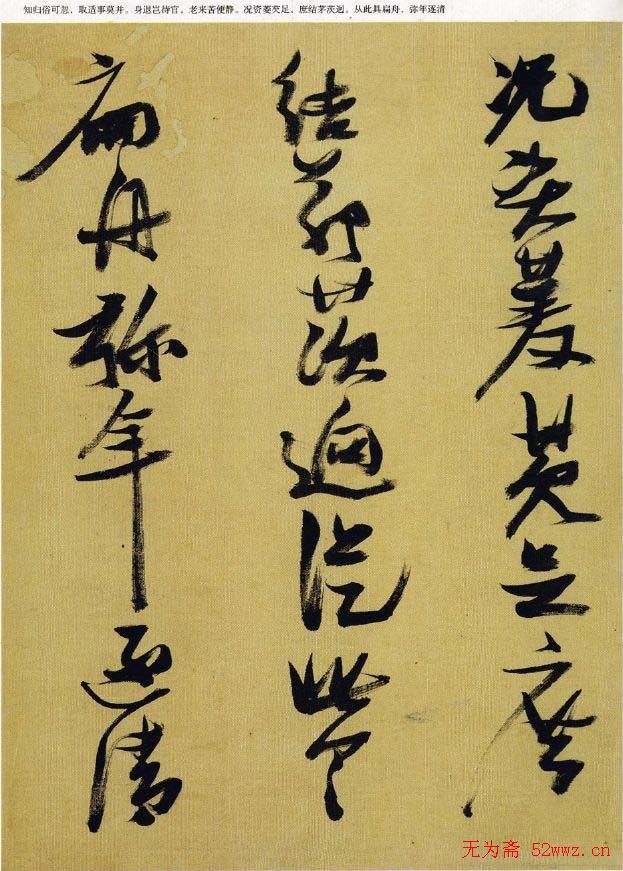 知归俗可忽，取适事莫并。身退岂待官，老来苦便静。况资菱芡足，庶结茅茨迥。从此具扁舟，弥年逐清
况資菱芡足庶
結茅茨逈從此具
扁舟弥年逐清
无为斋 52wwz.cn